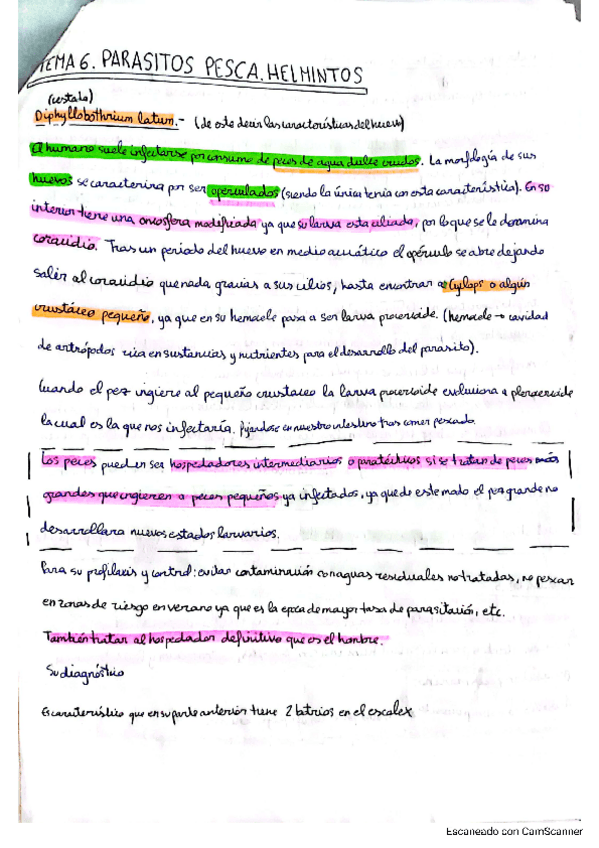 TEMA 6. PARASITOS PESCA. HELMINTOS
(cestodo)
Diphyllobothrium latum.- (de este decir las características del huevo)
El humano suele infectarse por consumo de peces de agua dulce crudos. La morfología de sus
huevos se caracteriza por ser operculados (siendo la única tenia con esta característica). En su
interior tiene una oncosfera modificada ya que su larva esta ciliada, por lo que se le denomina
coracidio. Tras un periodo del huevo en medio acuático el opérculo se abre dejando
salir al coracidio que nada gracias a sus cilios, hasta encontrar a Cyclops o algún
crustáceo pequeño, ya que en su hemocele pasa a ser larva procercoide. (hemocele → cavidad
de artrópodos rica en sustancias y nutrientes para el desarrollo del parasito).
Cuando el pez ingiere al pequeño crustaceo la larva procercoide evoluciona a plerocercoide
la cual es la que nos infectaría. fijandose en nuestro intestino tras comer pescado.
Los peces pueden ser hospedadores intermediarios o paraténicos si se tratan de peces más
grandes que ingieren a peces pequeños ya infectados, ya que de este modo el pez grande no
desarrollara nuevos estados larvarios.
Para su profilaxis y control: evitar contaminación con aguas residuales no tratadas, no pescar
en zonas de riesgo en verano ya que es la epoca de mayor tasa de parasitación, etc.
También tratar al hospedador definitivo que es el hombre.
Su diagnóstico
Es característico que en su parte anterior tiene 2 botrios en el escolex
Escaneado con CamScanner